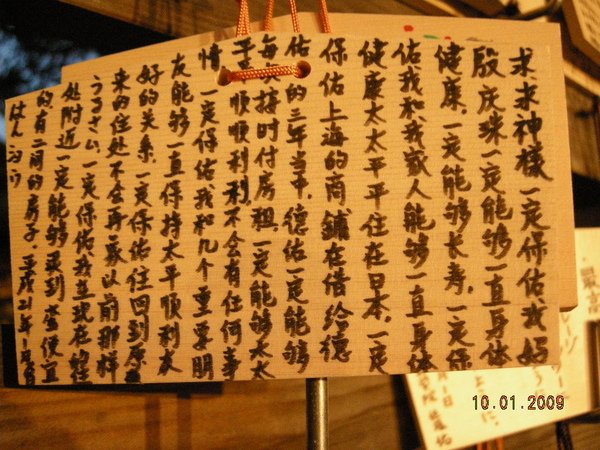 求求神様一定保佑我妈
殷庆珠一定能够一直身体
健康,一定能够长寿.一定保
佑我和我家人能够一直身体
健康太太平平住在日本.一定
保佑上海的商鋪在借给德
佑的三年当中,德佑一定能够
每 按时付房租.一定能够太太
平 順順利利不会有任何事
情.一定保佑我和几个重要朋
友能够一直保持太平順利友
好的关系.一定保佑住回到原
来的住处不会再 以前那样
うるさい.一定保佑我 现在
处附近一定能够 到 便宜
的有二间的房子.平成21年1月
10.01.2009